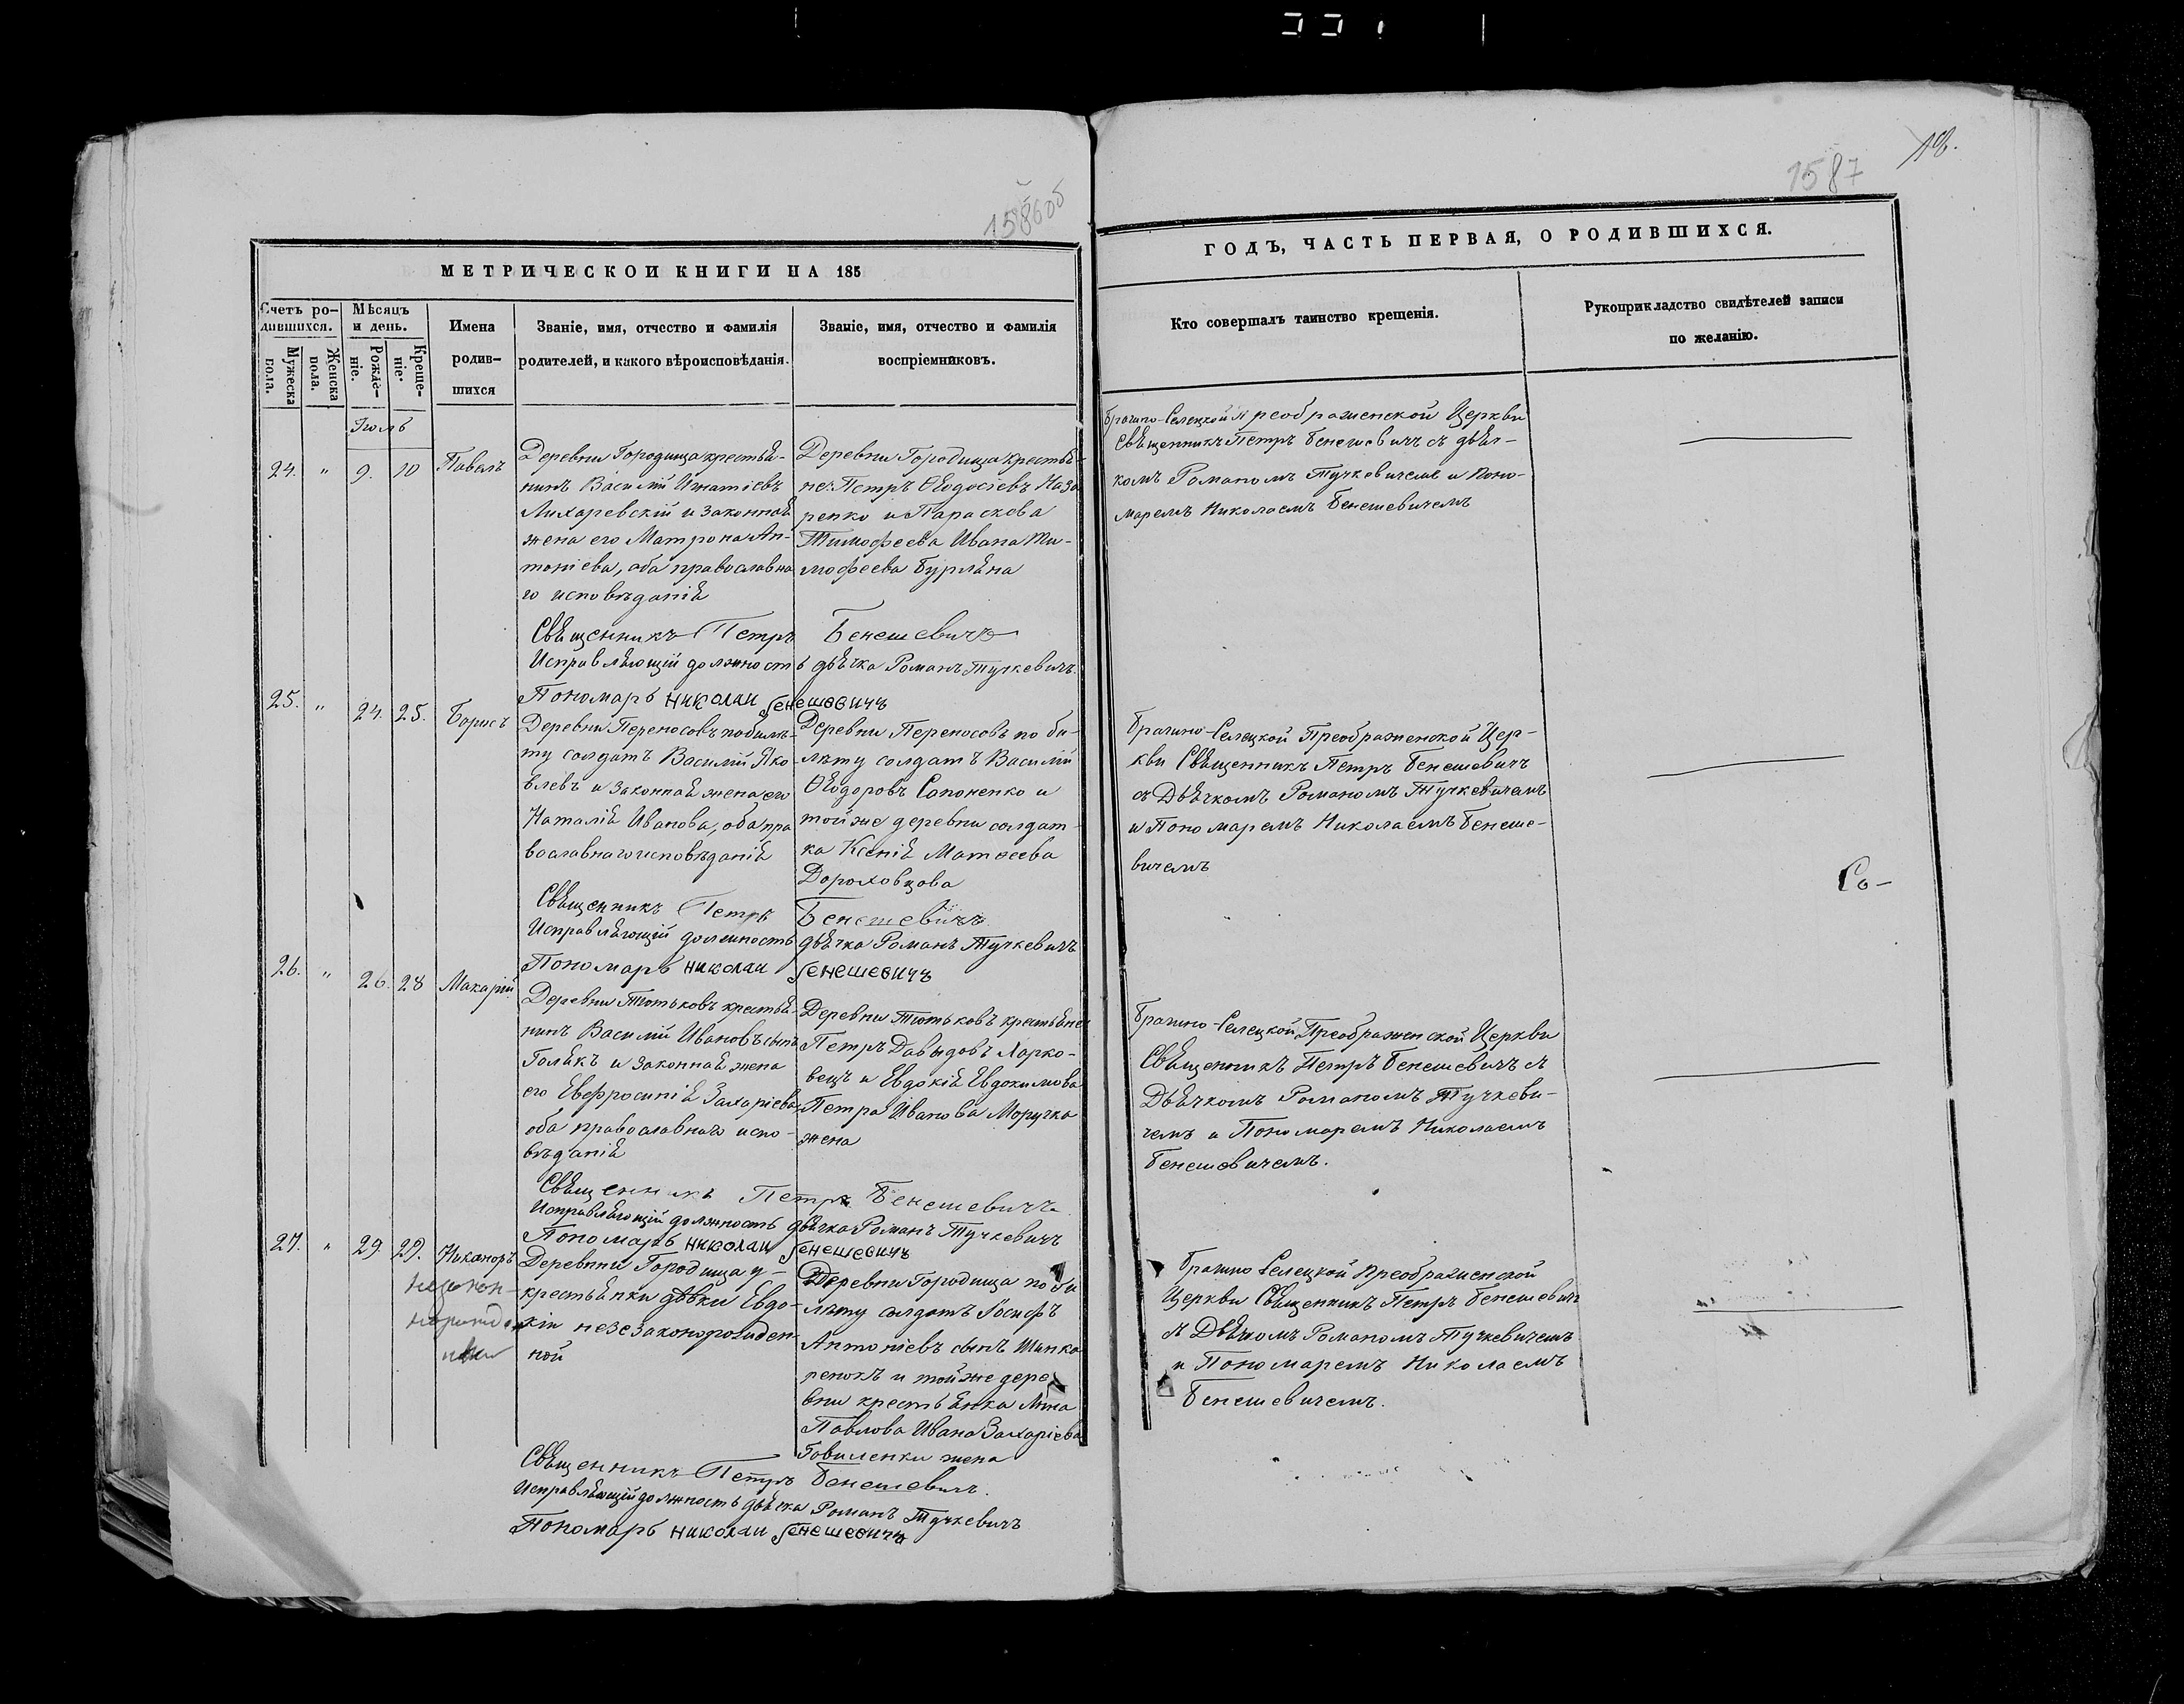 1586об
1587
18.
МЕТРИЧЕСКОЙ КНИГИ НА 185
ГОДЪ, ЧАСТЬ ПЕРВАЯ, О РОДИВШИХСЯ.
Счетъ ро-
дившихся.
Мужеска
пола.
Женска
пола.
Мѣсяцъ
и день.
Рожде-
ніе.
Креще-
ніе.
Имена
родив-
шихся
Званіе, имя, отчество и фамилія
родителей, и какого вѣроисповѣданія.
Званіе, имя, отчество и фамилія
воспріемниковъ.
Кто совершалъ таинство крещенія.
Рукоприкладство свидѣтелей записи
по желанію.
Іюль
24. " 9. 10 Павелъ
Деревни Городища крестья-
нинъ Василій Игнатіевъ
Лихаревскій и законная
жена его Матрона Ан-
тоніева, оба православна
го исповѣданія
Деревни Городища крестья-
не: Петръ Ѳеодосіевъ Наза
ренко и Параскева
Тимофеева Ивана Ти-
мофеева Бурляна
Брагино-Селецкой Преображенской Церкви
Священникъ Петръ Бенешевичъ съ дьяч-
комъ Романомъ Тучкевичемъ и Поно-
маремъ Николаемъ Бенешевичемъ
Священникъ Петръ Бенешевичъ
Исправляющій должность дьячка Романъ Тучкевичъ.
Пономарь Николай Бенешевичъ
25. " 24. 25. Борисъ
Деревни Переносовъ по биле-
ту солдатъ Василій Яко-
влевъ и законная жена его
Наталія Иванова, оба пра
вославнаго исповѣданія
Деревни Переносовъ по би-
лету солдатъ Василій
Ѳеодоровъ Сапоненко и
той же деревни солдат-
ка Ксенія Матѳеева
Дороховцова
Брагино-Селецкой Преображенской Цер-
кви Священникъ Петръ Бенешевичъ
съ Дьячкомъ Романомъ Тучкевичемъ
и Пономаремъ Николаемъ Бенеше-
вичемъ
Со-
Священникъ Петръ Бенешевичъ
Исправляющій должность дьячка Романъ Тучкевичъ
Пономарь Николай Бенешевичъ
26. " 26. 28 Макарій
Деревни Тютьковъ крестья-
нинъ Василій Ивановъ сынъ
Голякъ и законная жена
его Евфросинія Захаріева
оба православнаго испо-
вѣданія
Деревни Тютьковъ крестьяне
Петръ Давыдовъ Харко-
вецъ и Евдокія Евдокимова
Петра Иванова Моручка
жена
Брагино-Селецкой Преображенской Церкви
Священникъ Петръ Бенешевичъ съ
Дьячкомъ Романомъ Тучкеви-
чемъ и Пономаремъ Николаемъ
Бенешевичемъ.
Священникъ Петръ Бенешевичъ
Исправляющій должность дьячка Романъ Тучкевичъ
Пономарь Николай Бенешевичъ
27. " 29. 29. Никаноръ
Деревнни Городища у-
крестьянки дѣвки Евдо-
кіи незезаконорожден
ной
Деревни Городища по би
лету солдатъ Іосифъ
Антоніевъ сынъ Шинка
ренокъ и той же дере
вни крестьянка Анна
Павлова Ивана Захаріева
Говиленки жена
Брагино Селецкой Преображенской
Церкви Священникъ Петръ Бенешевичъ
съ Дьячкомъ Романомъ Тучкевичемъ
и Пономаремъ Николаемъ
Бенешевичемъ.
Священникъ Петръ Бенешевичъ.
Исправляющій должность дьячка Романъ Тучкевичъ
Пономарь Николай Бенешевичъ